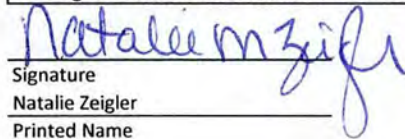 Natalie M Zeigler
Signature
Natalie Zeigler
Printed Name